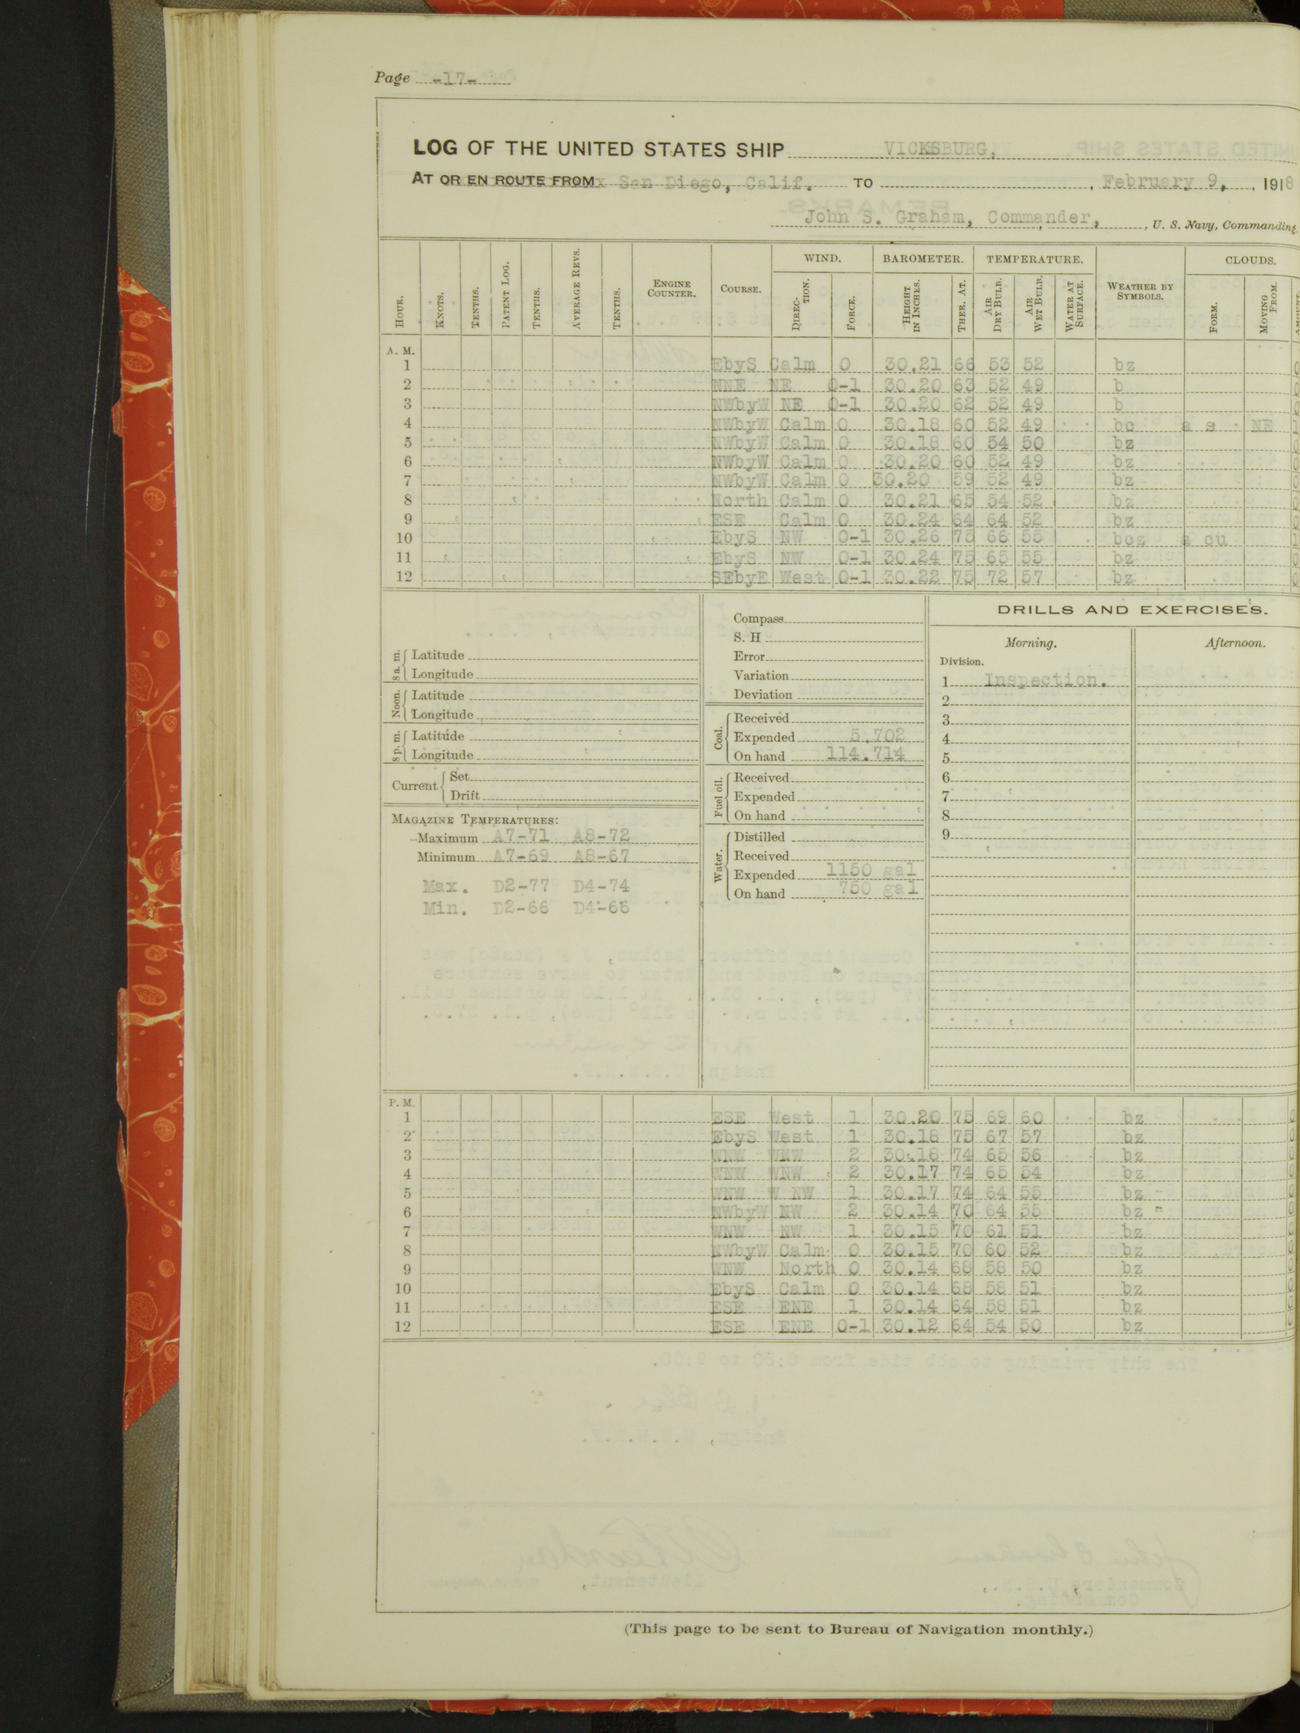 Page -17-
LOG OF THE UNITED STATES SHIP VICKSBURG,
AT OR EN ROUTE FROM San Diego, Calif. TO , February 9, , 1918
John S. Graham, Commander, , U. S. Navy, Commanding.
WIND. BAROMETER. TEMPERATURE. CLOUDS.
HOUR. KNOTS. TENTHS. PATENT LOG. TENTHS. AVERAGE REVS. TENTHS. ENGINE COUNTER. COURSE. DIRECTION. FORCE. HEIGHT IN INCHES. THER. AT. AIR DRY BULB. AIR WET BULB. WATER AT SURFACE. WEATHER BY SYMBOLS. FORM. MOVING FROM. AMOUNT.
A. M.
1 EbyS Calm 0 30.21 66 53 52 bz 0
2 NNE NE 0-1 30.20 63 52 49 b 0
3 NWbyW NE 0-1 30.20 62 52 49 b 0
4 NWbyW Calm 0 30.18 60 52 49 bc a s NE 1
5 NWbyW Calm 0 30.18 60 54 50 bz 0
6 NWbyW Calm 0 30.20 60 52 49 bz 0
7 NWbyW Calm 0 30.20 59 52 49 bz 0
8 North Calm 0 30.21 65 54 52 bz 0
9 ESE Calm 0 30.24 64 64 52 bz 0
10 EbyS NW 0-1 30.26 75 66 55 bcz a cu 1
11 EbyS NW 0-1 30.24 75 65 55 bz 0
12 SEbyE West 0-1 30.22 75 72 57 bz 0
8 a. m. Latitude
Longitude
Noon. Latitude
Longitude
8 p. m. Latitude
Longitude
Current Set
Drift
MAGAZINE TEMPERATURES:
Maximum A7-71 A8-72
Minimum A7-69 A8-67
Max. D2-77 D4-74
Min. D2-66 D4-66
Compass
S. H
Error
Variation
Deviation
Coal. Received
Expended 5.702
On hand 114.714
Fuel oil. Received
Expended
On hand
Water. Distilled
Received
Expended 1150 gal
On hand 750 gal
DRILLS AND EXERCISES.
Morning. Afternoon.
Division.
1 Inspection.
2
3
4
5
6
7
8
9
P. M.
1 ESE West 1 30.20 75 69 60 bz 0
2 EbyS West 1 30.18 75 67 57 bz 0
3 WNW WNW 2 30.18 74 65 56 bz 0
4 WNW WNW 2 30.17 74 65 54 bz 0
5 WNW W NW 1 30.17 74 64 55 bz 0
6 NWbyW NW 2 30.14 70 64 55 bz 0
7 WNW NW 1 30.15 70 61 51 bz 0
8 NWbyW Calm 0 30.15 70 60 52 bz 0
9 WNW North 0 30.14 68 58 50 bz 0
10 EbyS Calm 0 30.14 68 58 51 bz 0
11 ESE ENE 1 30.14 64 58 51 bz 0
12 ESE ENE 0-1 30.12 64 54 50 bz 0
(This page to be sent to Bureau of Navigation monthly.)